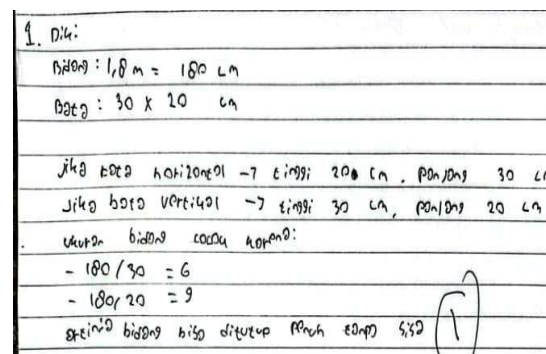 1. Dik:
Bidang : 1,8 m = 180 cm
Bata : 30 x 20 cm
jika bata horizontal → tinggi 20 cm, panjang 30 cm
Jika bata vertikal → tinggi 30 cm, panjang 20 cm
ukuran bidang cocok karena:
- 180/30 = 6
- 180/20 = 9
artinya bidang bisa ditutup penuh tanpa sisa